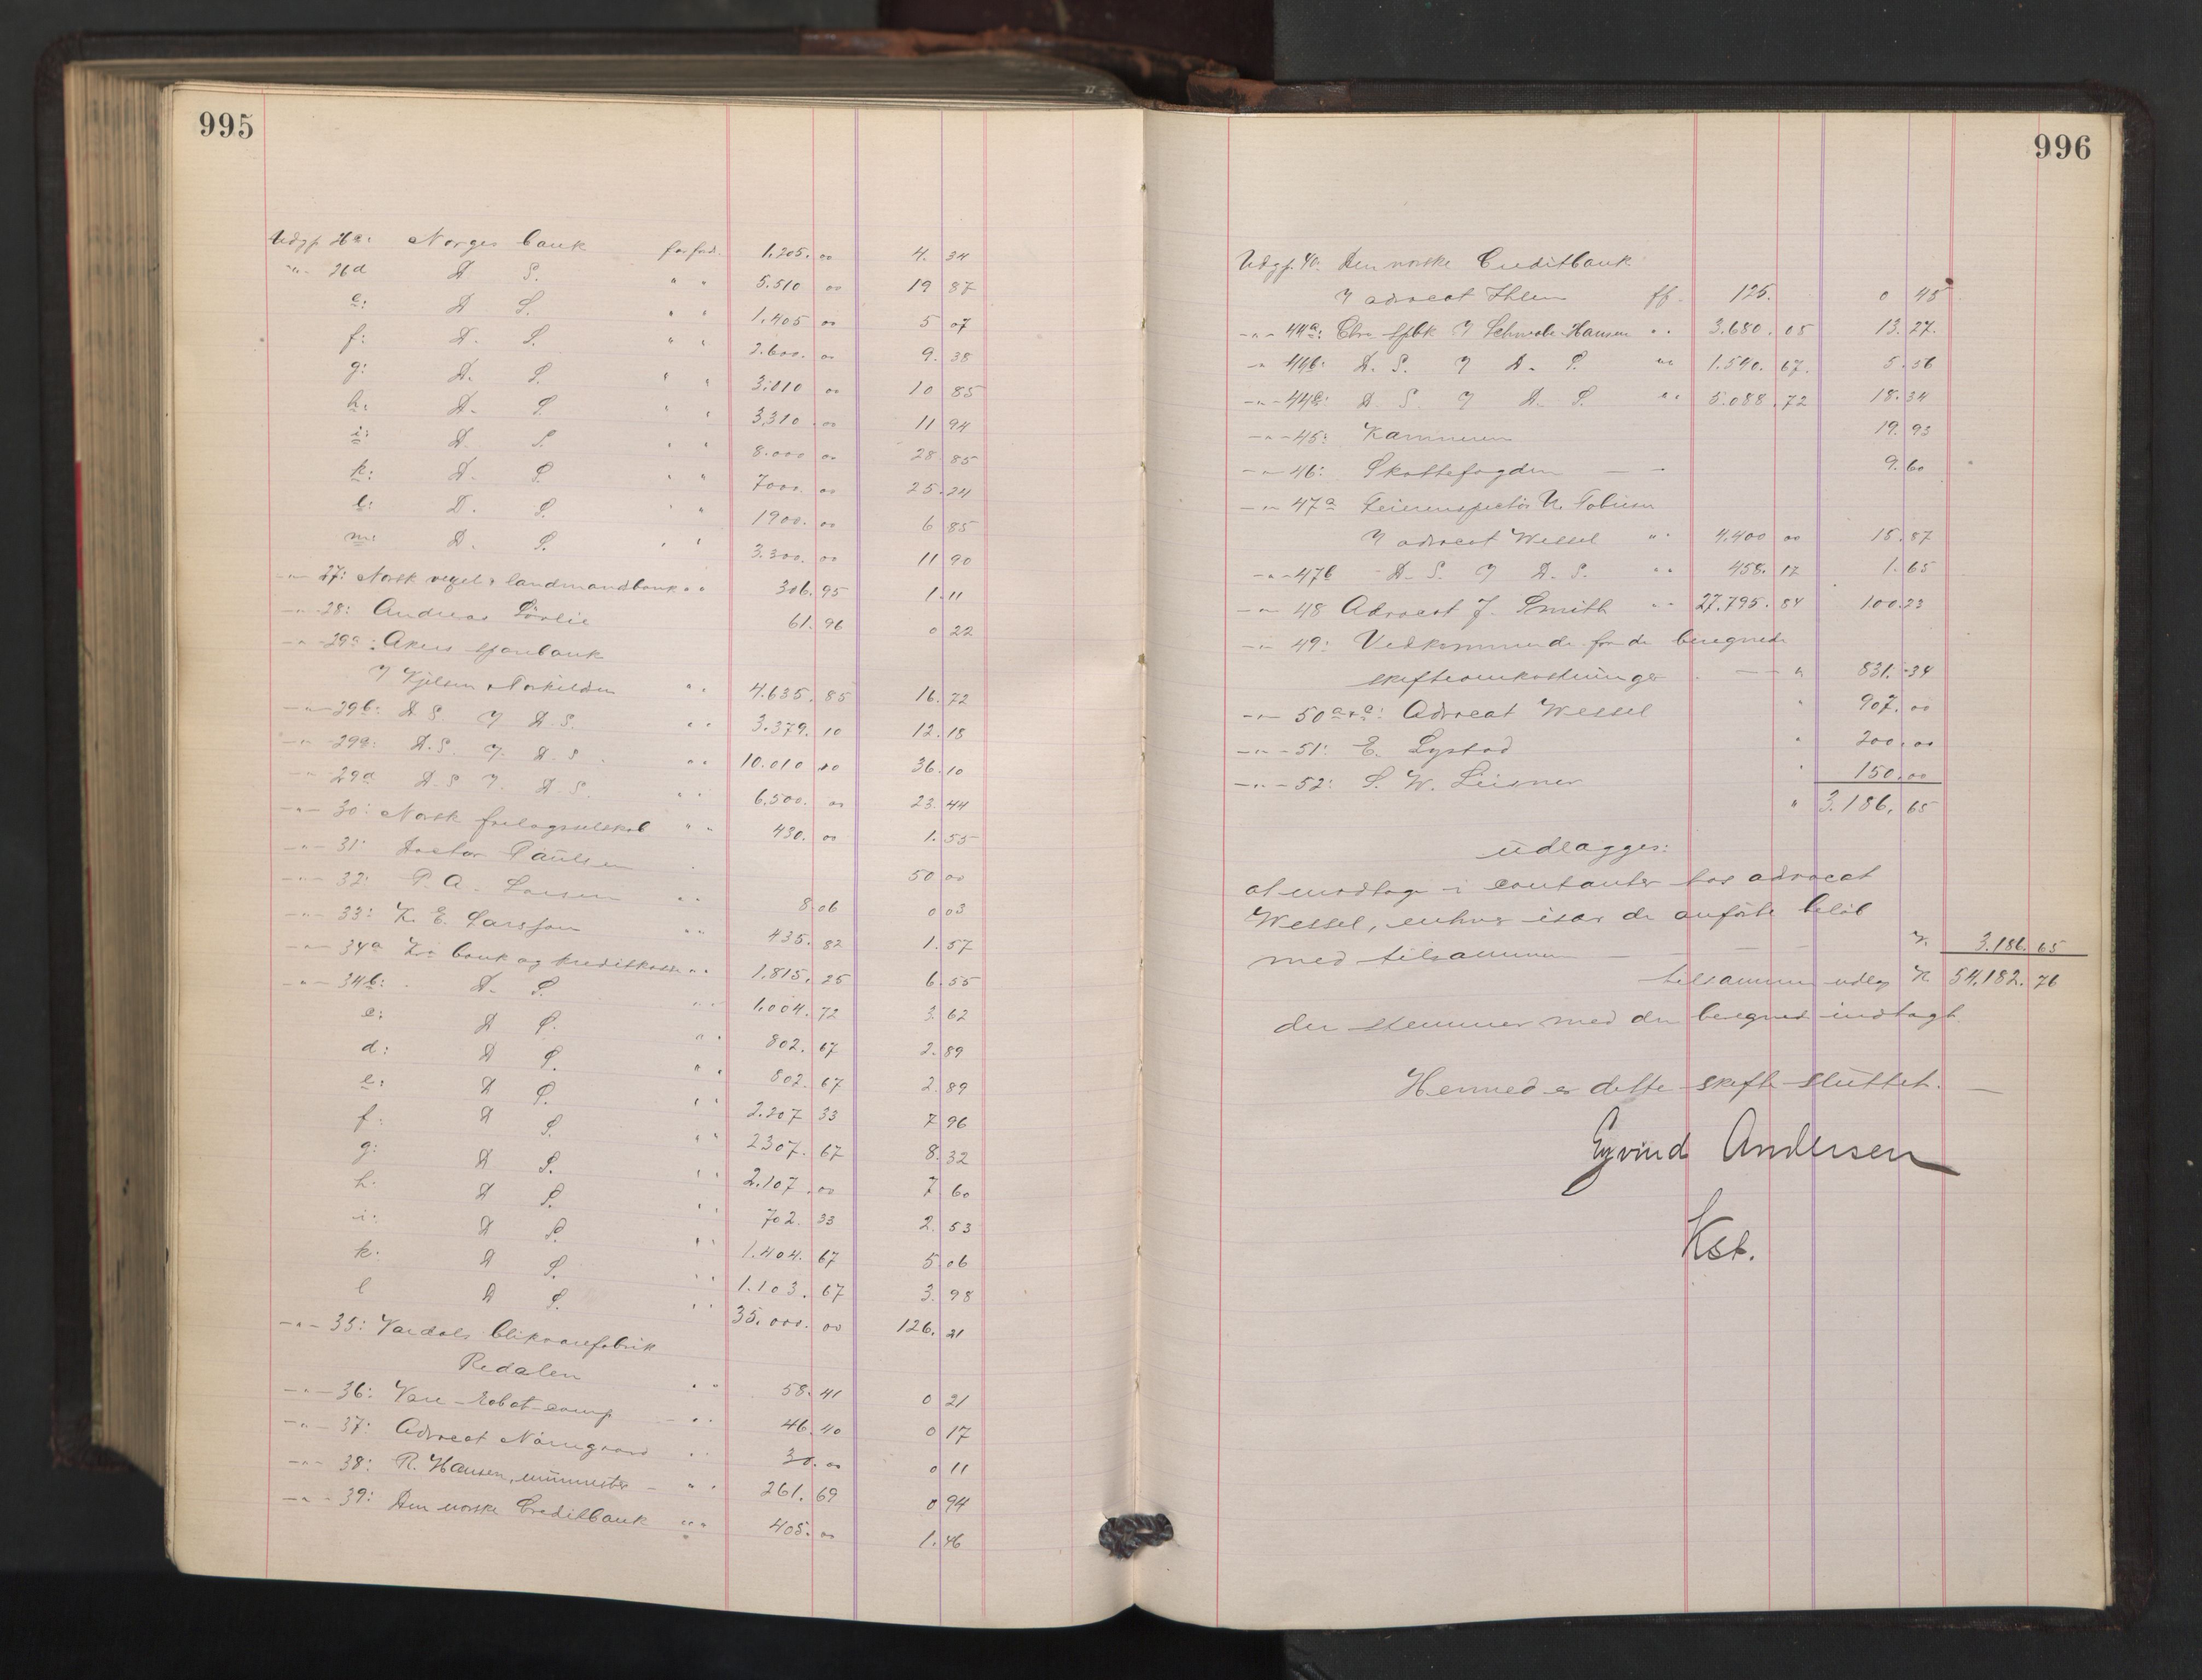 995
Udgf. 26c: Norges bank for ford. 1.205. 00 4. 34
-"- 26d D S. " " 5.510 00 19 87
e: D S. " " 1.405 00 5 07
f: D. S. " " 2.600. 00 9. 38
g: D. S. " " 3.010 00 10 85
h: D. S. " " 3.310 00 11 94
i: D. S. " " 8.000 00 28 85
k: D. S. " " 7000. 00 25. 24
l: D. S. " " 1900. 00 6 85
m: D. S. " " 3.300. 00 11 90
-"- 27: Norsk vexel & landmandsbank " " 306. 95 1. 11
-"- 28: Andreas Sörlie 61. 96 0 22
-"- 29a: Akers sparebank
v/ Kjelsen & Torkildsen " " 4.635. 85 16. 72
-"- 29b: D.S. v/ D.S. " " 3.379. 10 12. 18
-"- 29c: D.S. v/ D.S. " " 10.010 00 36. 10
-"- 29d D.S v/ D.S. " " 6.500. 00 23. 44
-"- 30: Norsk forlagsselskab " " 430. 00 1. 55
-"- 31: Doctor Paulsen 50 00
-"- 32: P. A. Larsen " " 8 06 0 03
-"- 33: K. E. Larsson " " 435. 82 1. 57
-"- 34a Kra bank og kreditkasse " " 1.815. 25 6. 55
-"- 34b: D. S. " " 1.004. 72 3. 62
c: D S. " " 802. 67 2. 89
d: D S. " " 802. 67 2. 89
e: D S. " " 2.207 33 7 96
f: D S. " " 2307. 67 8. 32
g: D S. " " 2.107. 00 7 60
h. D S. " " 702. 33 2. 53
i: D S. " " 1.404. 67 5. 06
k: D S. " " 1.103. 67 3. 98
l D S. " " 35.000. 00 126. 21
-"- 35: Vardals blikvarefabrik
Redalen " " 58. 41 0 21
-"- 36: Vare-Robot-comp - " " 46. 40 0 17
-"- 37: Advocat Nörregaard " " 30. 00 0 11
-"- 38: R. Hansen, murmester - " " 261. 69 0 94
-"- 39: Den norske Creditbank " " 405. 00 1. 46
996
Udgf. 40. Den norske Creditbank
v/ advocat Ihlen ff. 125. 0 45
-"- 44a: Chra spbk v/ Schwabe-Hansen " " 3.680. 05 13. 27.
-"- 44b: D. S. v/ D. S. " " 1.540. 67. 5. 56
-"- 44c: D. S. v/ D. S. " " 5.088. 72 18. 34
-"- 45: Kæmneren 19. 93
-"- 46: Skattefogden - - 9. 60
-"- 47a Feierinspectör N. Tobiesen
v/ advocat Wessel " " 4.400 00 15. 87
-"- 47b D. S. v/ D. S. " " 458. 17 1. 65
-"- 48 Advocat J. Smith " " 27.795. 84 100. 23
-"- 49: Vedkommende for de beregnede
skifteomkostninger - - " 831. 34
-"- 50a+c: Advocat Wessel " 907. 00
-"- 51: E. Lystad " 200. 00
-"- 52: S. W. Leisner " 150. 00
" 3.186. 65
udlægges:
at modtage i contanter hos advocat
Wessel, enhver især de anförte belöb
med tilsammen - - - K. 3.186. 65
tilsammen udlagt K 54.182. 76
der stemmer med den beregnede indtægt
Hermed er dette skifte sluttet. -
Eyvind Andersen
Kst.